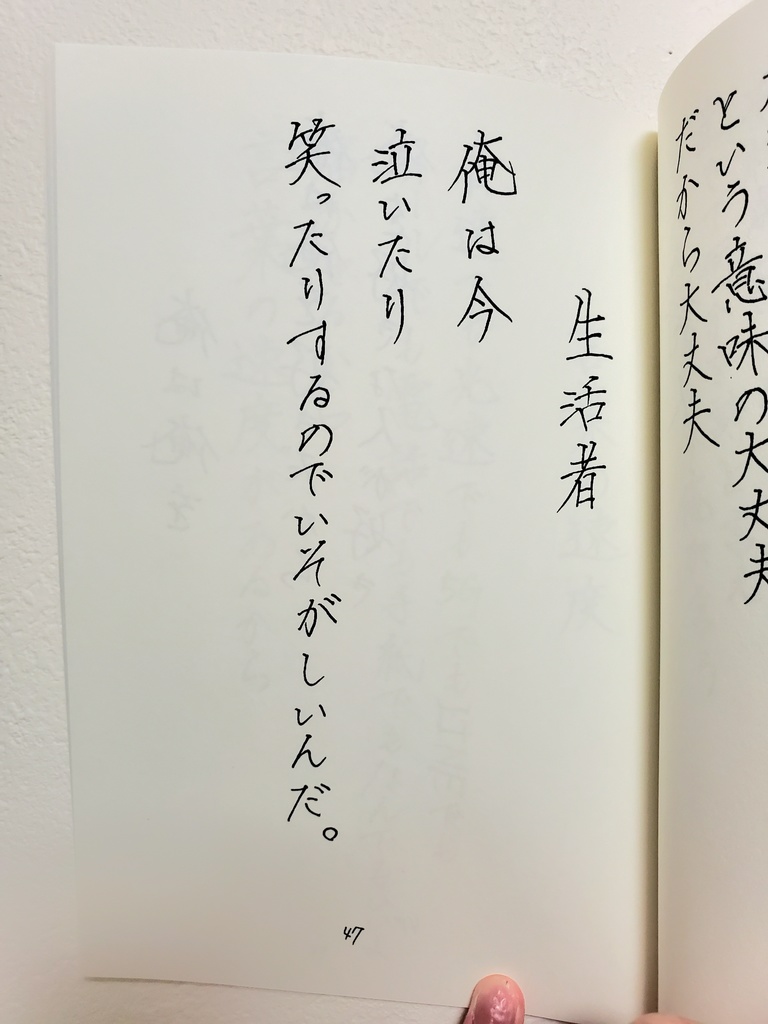 という意味の大丈夫
だから大丈夫
生活者
俺は今
泣いたり
笑ったりするのでいそがしいんだ。
47